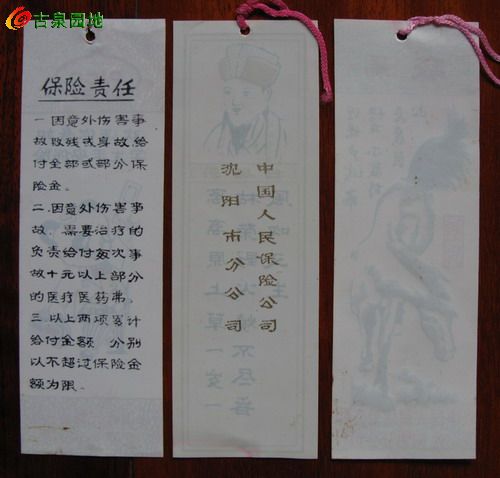 古泉园地
保险责任
一.因意外伤害事
故致残或身故,给
付全部或部分保
险金。
二.因意外伤害事
故,需要治疗的
负责给付每次事
故十元以上部分
的医疗医药弗。
三.以上两项累计
给付金额 分别
以不超过保险金
额为限。
中国人民保险公司
沈阳市分公司